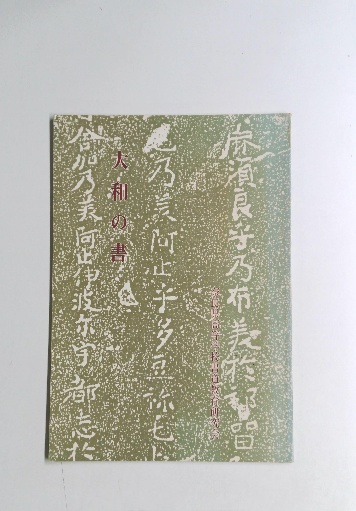 麻須良乎乃布美於祁留
乃美阿止乎多豆祢毛止
大和の書
舎加乃美阿止伊波尓宇都志於